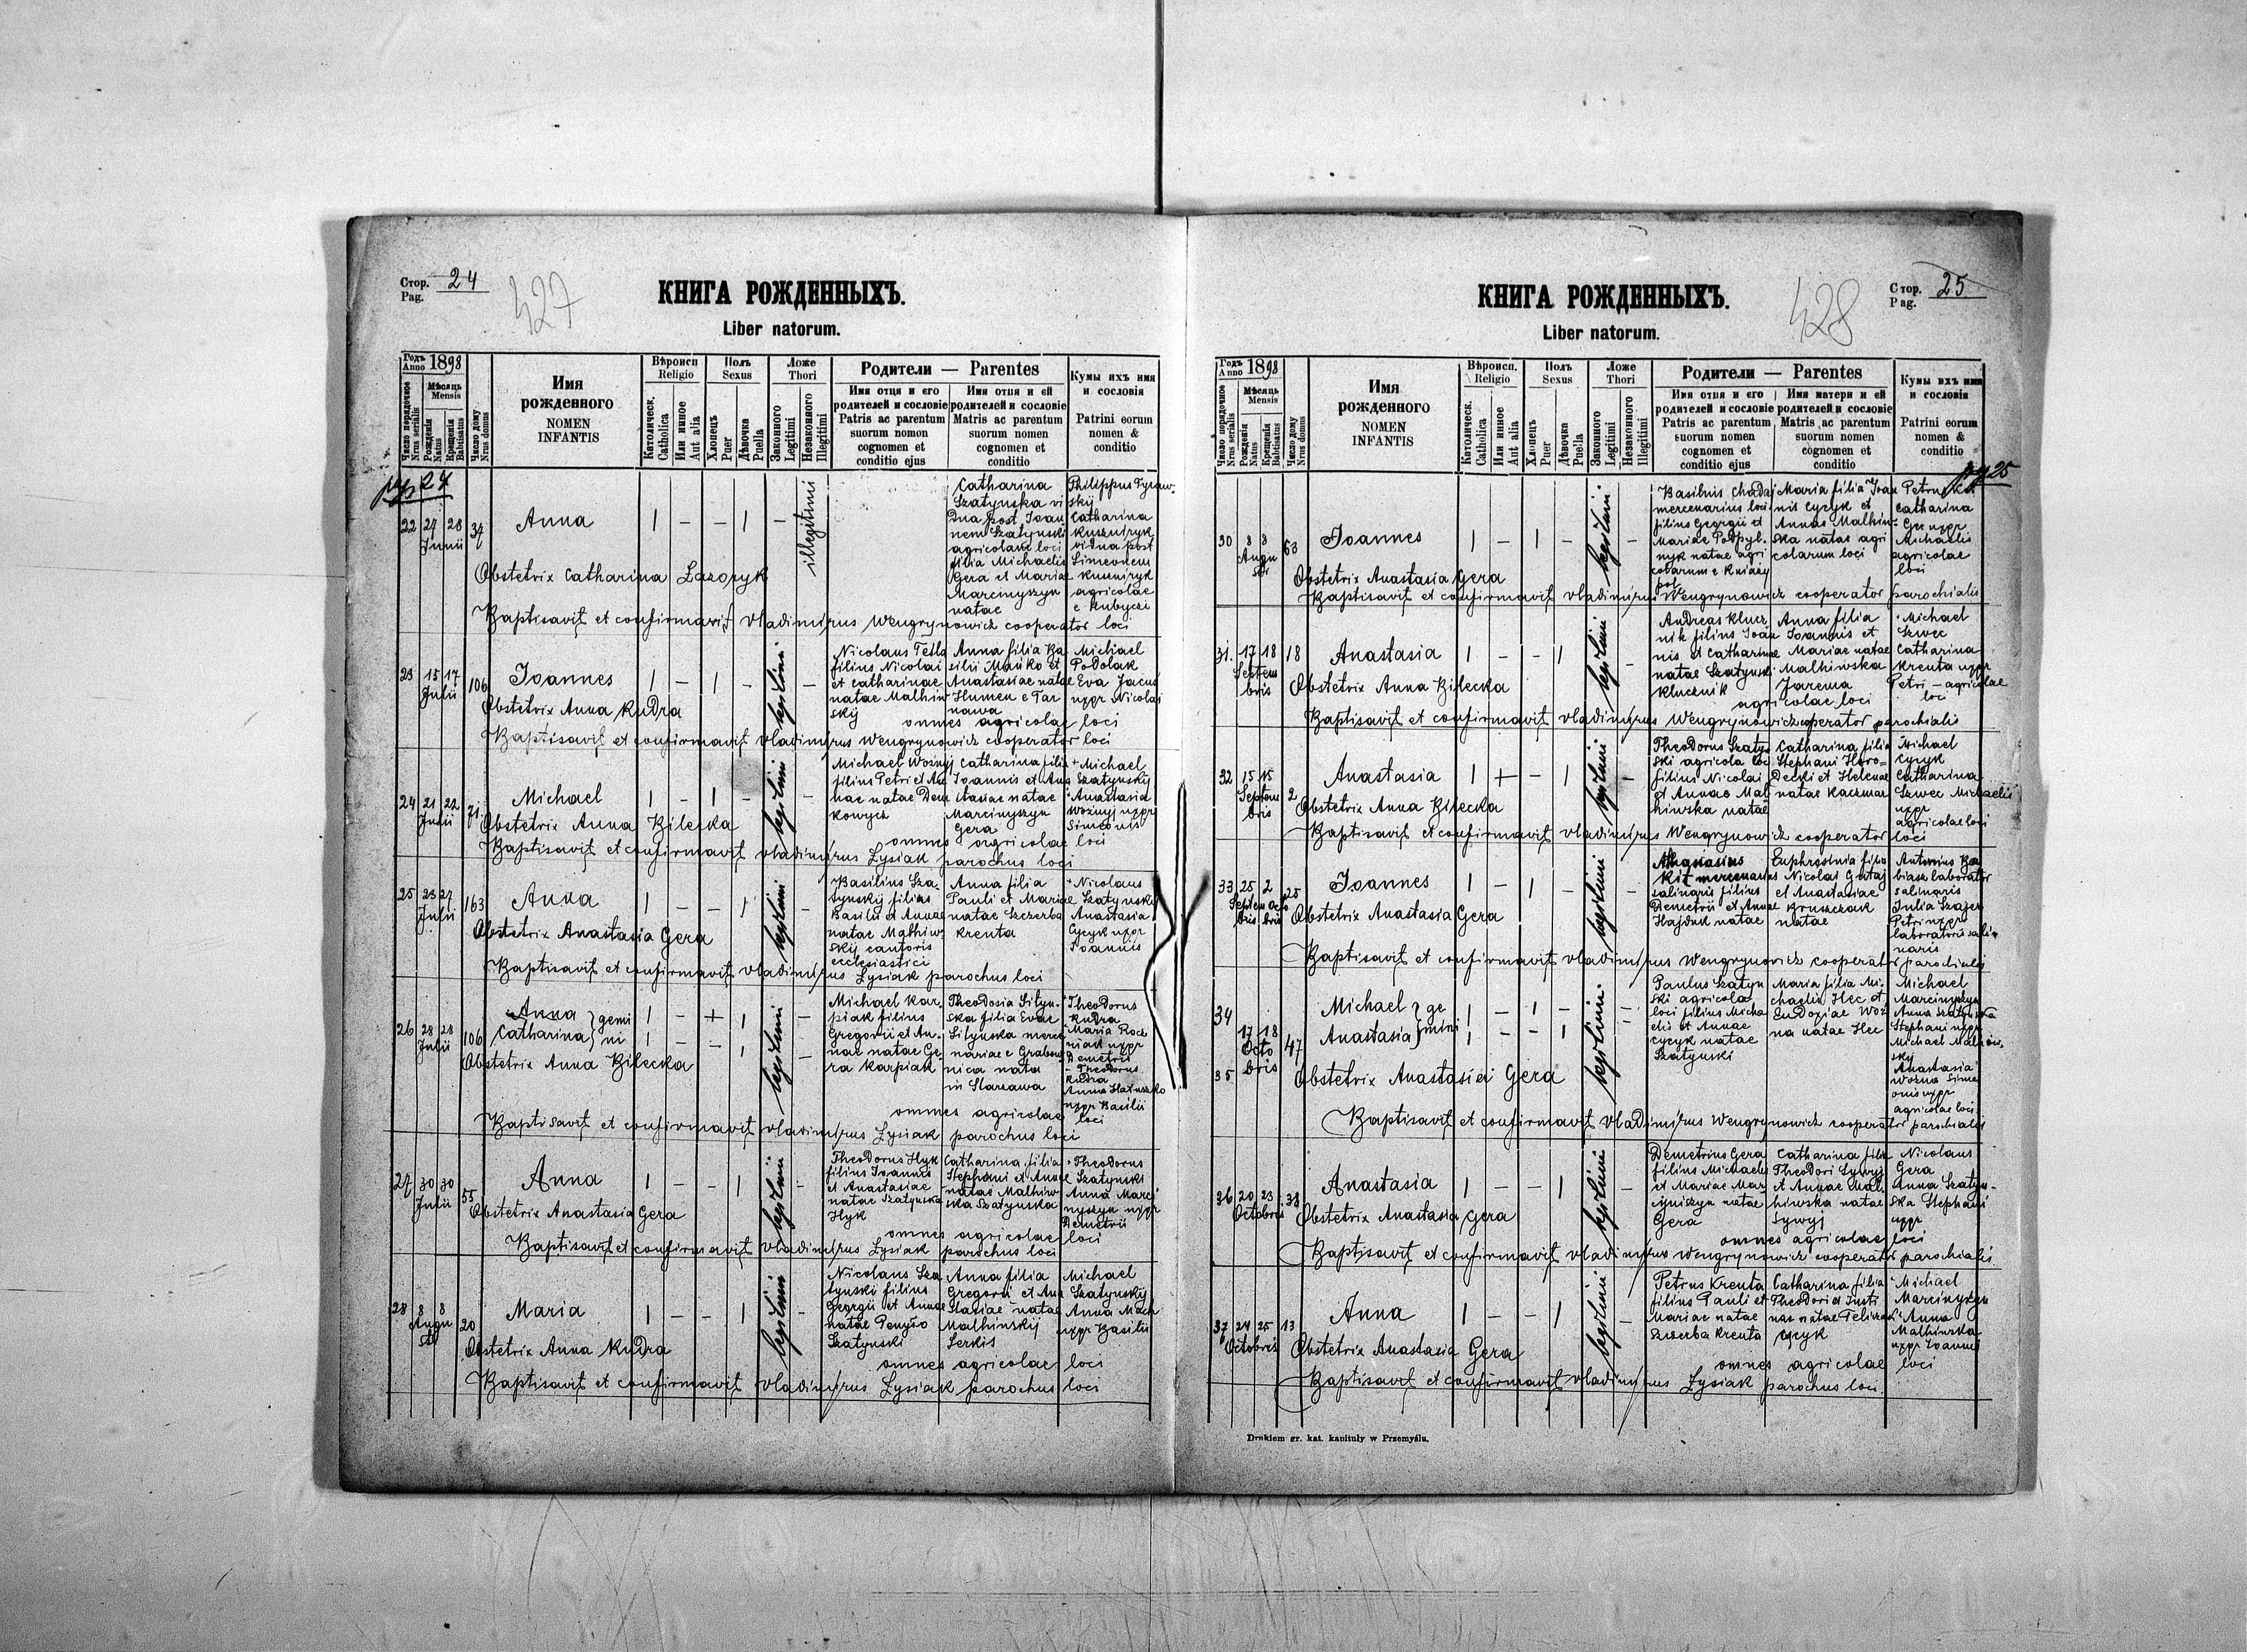 Стор. 24
Pag.
427
КНИГА РОЖДЕННЫХЪ.
Liber natorum.
Годъ 1898
Anno
Мѣсяць
Mensis
Число порядочное
Nrus serialis
Рожденія
Natus
Крещенія
Babtisatus
Число дому
Nrus domus
Имя
рожденного
NOMEN
INFANTIS
Вѣроисп
Religio
Католическ.
Catholica
Или инное
Aut alia
Полъ
Sexus
Хлопецъ
Puer
Дѣвочка
Puella
Ложе
Thori
Законного
Legitimi
Незаконного
Illegitimi
Родители — Parentes
Имя отця и его
родителей и сословіе
Patris ac parentum
suorum nomon
cognomen et
conditio ejus
Имя отця и ей
родителей и сословіе
Matris ac parentum
suorum nomen
cognomen et
conditio
Кумы ихъ имя
и сословія
Patrini eorum
nomen &
conditio
22 27 28 Junii 37
Anna
illegitimi
Catharina
Szatynska vi
dua post Joan
nem Szatynski
agricolam loci
filia Michaelis
Gera et Mariae
Marcinyszyn
natae
Catharina
Kuszniryk
vidua post
Simeonem
Kuszniryk
agricolae
Obstetrix Catharina Lazoryk
Baptisavit et confirmavit Vladimirus Wengrynowicz cooperator loci
23 15 17 Julii 106
Joannes
legitimi
filius Nicolai
et Catharinae
natae Malhiw
skij
Anna filia Ba
silii Mańko et
Anastasiae natae
Humen e Tar
nawa
Michael
Podolak
Eva Jacus
uxor Nicolai
Obstetrix Anna Kudra
omnes agricolae loci
Baptisavit et confirmavit Vladimirus Wengrynowicz cooperator loci
24 21 22 Julii 71
Michael
legitimi
Michael Woznyj
filius Petri et An
nae natae Dem
kowycz
Catharina filia
Joannis et Ana
stasiae natae
Marcinyszyn
Gera
Michael
Szatynskij
Anastasia
Woznyj uxor
Simeonis
Obstetrix Anna Bilecka
omnes agricolae loci
Baptisavit et confirmavit Vladimirus Lysiak parochus loci
25 23 27 Julii 163
Anna
legitimi
Basilius Sza
tynskij filius
Basilii et Annae
natae Malhiw
skij cantoris
ecclesiastici
Anna filia
Pauli et Mariae
natae Szczerba
Krenta
Nicolaus
Szatynskij
Anastasia
Cycyk uxor
Joannis
Obstetrix Anastasia Gera
Baptisavit et confirmavit Vladimirus Lysiak parochus loci
26 28 28 Julii 106
Anna
Catharina
gemi
ni
legitimi
Michael Kar
piak filius
Gregorii et An
nae natae Ge
ra Karpiak
Theodorus
Kudra
uxor
Demetrii
Theodorus
Kudra
uxor Basilii
Obstetrix Anna Bilecka
omnes agricolae loci
Baptisavit et confirmavit Vladimirus Lysiak parochus loci
27 30 30 Julii 55
Anna
legitimi
Theodorus Hyk
filius Joannis
et Anastasiae
natae Szatynska
Hyk
Catharina filia
Stephani et Annae
natae Malhiw
ska Szatynska
Theodorus
Szatynski
Anna Marci
nyszyn uxor
Demetrii
Obstetrix Anastasia Gera
omnes agricolae loci
Baptisavit et confirmavit Vladimirus Lysiak parochus loci
28 8 8 Augu sti 20
Maria
legitimi
Nicolaus Sza
tynski filius
Georgii et Annae
natae Penyszo
Szatynski
Anna filia
Gregorii et Ana
stasiae natae
Malhinskij
Serkis
Michael
Szatynskij
Anna Mach
uxor Basilii
Obstetrix Anna Kudra
omnes agricolae loci
Baptisavit et confirmavit Vladimirus Lysiak parochus loci
Стор. 25
Pag.
428
КНИГА РОЖДЕННЫХЪ.
Liber natorum.
Годъ 1898
Anno
Мѣсяць
Mensis
Число порядочное
Nrus serialis
Рожденія
Natus
Крещенія
Babtisatus
Число дому
Nrus domus
Имя
рожденного
NOMEN
INFANTIS
Вѣроисп.
Religio
Католическ.
Catholica
Или инное
Aut alia
Полъ
Sexus
Хлопецъ
Puer
Дѣвочка
Puella
Ложе
Thori
Законного
Legitimi
Незаконного
Illegitimi
Родители — Parentes
Имя отця и его
родителей и сословіе
Patris ac parentum
suorum nomen
cognomen et
conditio ejus
Имя матери и ей
родителей и сословіе
Matris ac parentum
suorum nomen
cognomen et
conditio
Кумы ихъ имя
и сословія
Patrini eorum
nomen &
conditio
30 8 8 Augu sti 63
Joannes
legitimi
mercenarius loci
filius Georgii et
Mariae Podpyb
nyk natae agri
colarum e
Maria filia Joan
nis Cycyk et
Annae Malhiw
ska natae agri
colarum loci
Catharina
uxor
Michaelis
agricolae
loci
Obstetrix Anastasia Gera
Baptisavit et confirmavit Vladimirus Wengrynowicz cooperator parochialis
31. 17 18 Septem bris 18
Anastasia
legitimi
Andreas Klucz
nik filius Joan
nis et Catharinae
natae Szatynski
Klucznik
Anna filia
Joannis et
Mariae natae
Malhiwska
Jarema
Michael
Szwec
Catharina
Krenta uxor
Petri – agricolae
loci
Obstetrix Anna Bilecka
agricolae loci
Baptisavit et confirmavit Vladimirus Wengrynowicz cooperator parochialis
32 15 15 Septem bris 2
Anastasia
legitimi
Theodorus Szatyn
ski agricola loci
filius Nicolai
et Annae Mal
hiwska natae
Catharina filia
Stephani Horo=
decki et Helenae
natae Kaczmar
Michael
Cycyk
Catharina
Szwec Michaelis
uxor
agricolae loci
Obstetrix Anna Bilecka
Baptisavit et confirmavit Vladimirus Wengrynowicz cooperator loci
33 25 2 Septem bris Octo bris 25
Joannes
legitimi
Athanasius
Kit mercenarius
salinaris filius
Demetrii et Annae
Hajduk natae
Euphrosinia filia
Nicolai Gataj
et Anastasiae
Kruszczak
natae
laborator
salinaris
Julia Szajer
Petri uxor
laboratoris sali=
naris
Obstetrix Anastasia Gera
Baptisavit et confirmavit Vladimirus Wengrynowicz cooperator parochialis
34
35
17 18 Octo bris 47
Michael
Anastasia
ge
mini
legitimi
Paulus Szatyn
ski agricola
loci filius Micha
elis et Annae
Cycyk natae
Szatynski
Maria filia Mi
chaelis Hec et
Eudoxiae Woz
na natae Hec
Michael
Marcinyszyn
Anna Szatynska
Stephani uxor
Michael Malhiw
skij
Anastasia
Wozna Sime
onis uxor
agricolae loci
Obstetrix Anastasia Gera
Baptisavit et confirmavit Vladimirus Wengrynowicz cooperator parochialis
36 20 23 Octobris 38
Anastasia
legitimi
Demetrius Gera
filius Michaelis
et Mariae Mar
cyniszyn natae
Gera
Catharina filia
Theodori Sywyj
et Annae Mal
hiwska natae
Sywyj
Nicolaus
Gera
Anna Szatyn-
ska Stephani
uxor
Obstetrix Anastasia Gera
omnes agricolae loci
Baptisavit et confirmavit Vladimirus Wengrynowicz cooperator parochialis
37 24 25 Octobris 13
Anna
legitimi
Petrus Krenta
filius Pauli et
Mariae natae
Szczerba Krenta
Catharina filia
Theodori et Justi
nae natae
Cycyk
Michael
Marcinyszyn
Anna
Malhiwska
uxor Joannis
Obstetrix Anastasia Gera
omnes agricolae loci
Baptisavit et confirmavit Vladimirus Lysiak parochus loci
Drukiem gr. kat. kapituły w Przemyślu.